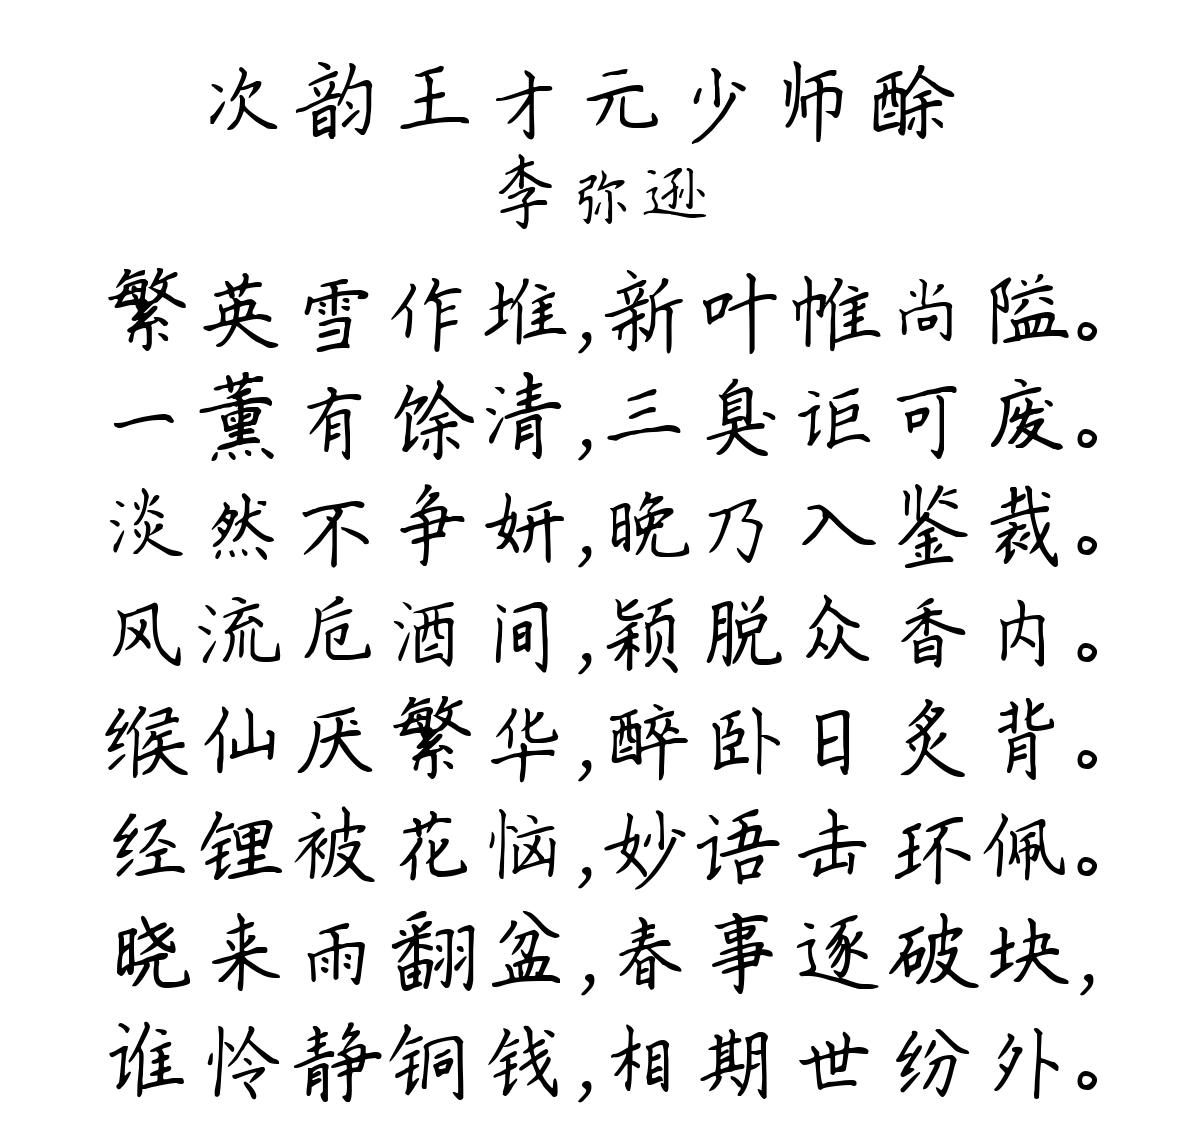 次韵王才元少师酴
李弥逊
繁英雪作堆,新叶帷尚隘。
一薰有馀清,三臭讵可废。
淡然不争妍,晚乃入鉴裁。
风流卮酒间,颖脱众香内。
缑仙厌繁华,醉卧日炙背。
经锂被花恼,妙语击环佩。
晓来雨翻盆,春事逐破块,
谁怜静铜钱,相期世纷外。